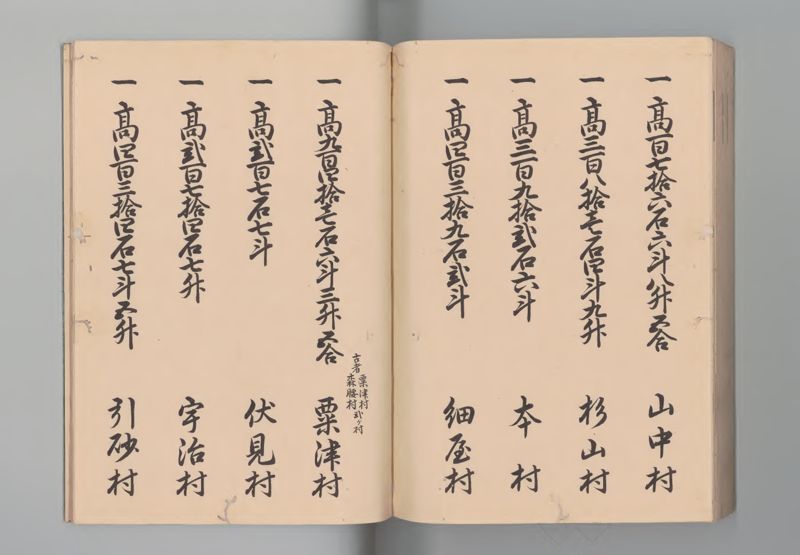 一 高百七拾六石六斗八升五合 山中村
一 高三百八拾壱石四斗九升 杉山村
一 高三百九拾弐石六斗 本村
一 高四百三拾九石弐斗 細屋村
古者粟津村森腰村弐ケ村
一 高九百四拾壱石六斗三升五合 粟津村
一 高弐百七石七斗 伏見村
一 高弐百七拾四石七升 宇治村
一 高四百三拾四石七斗五升 引砂村